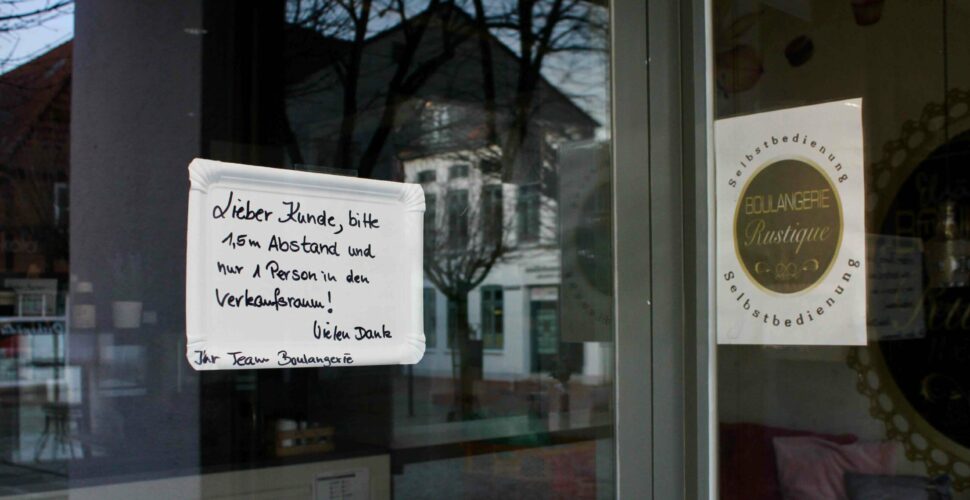 Lieber Kunde, bitte
1,5m Abstand und
nur 1 Person in den
Verkaufsraum!
Vielen Dank
Ihr Team Boulangerie
Selbstbedienung
BOULANGERIE
Rustique
Selbstbedienung